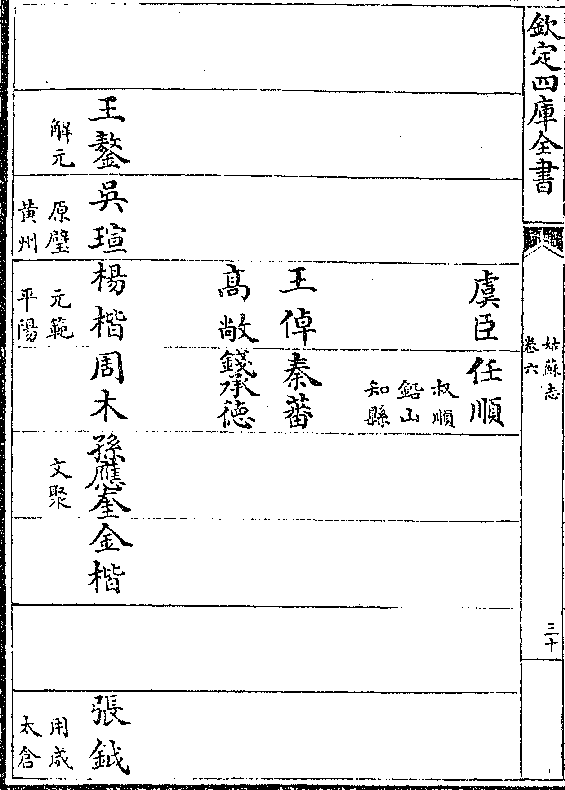 欽定四庫全書
姑蘇志
卷六
三十
虞臣
任順
叔順
鉛山
知縣
王倬
秦蕃
高敞
錢承徳
王鏊
解元
吳瑄
原璧
黃州
楊楷
元範
平陽
周木
孫應奎
文聚
金楷
張鉞
用
太倉